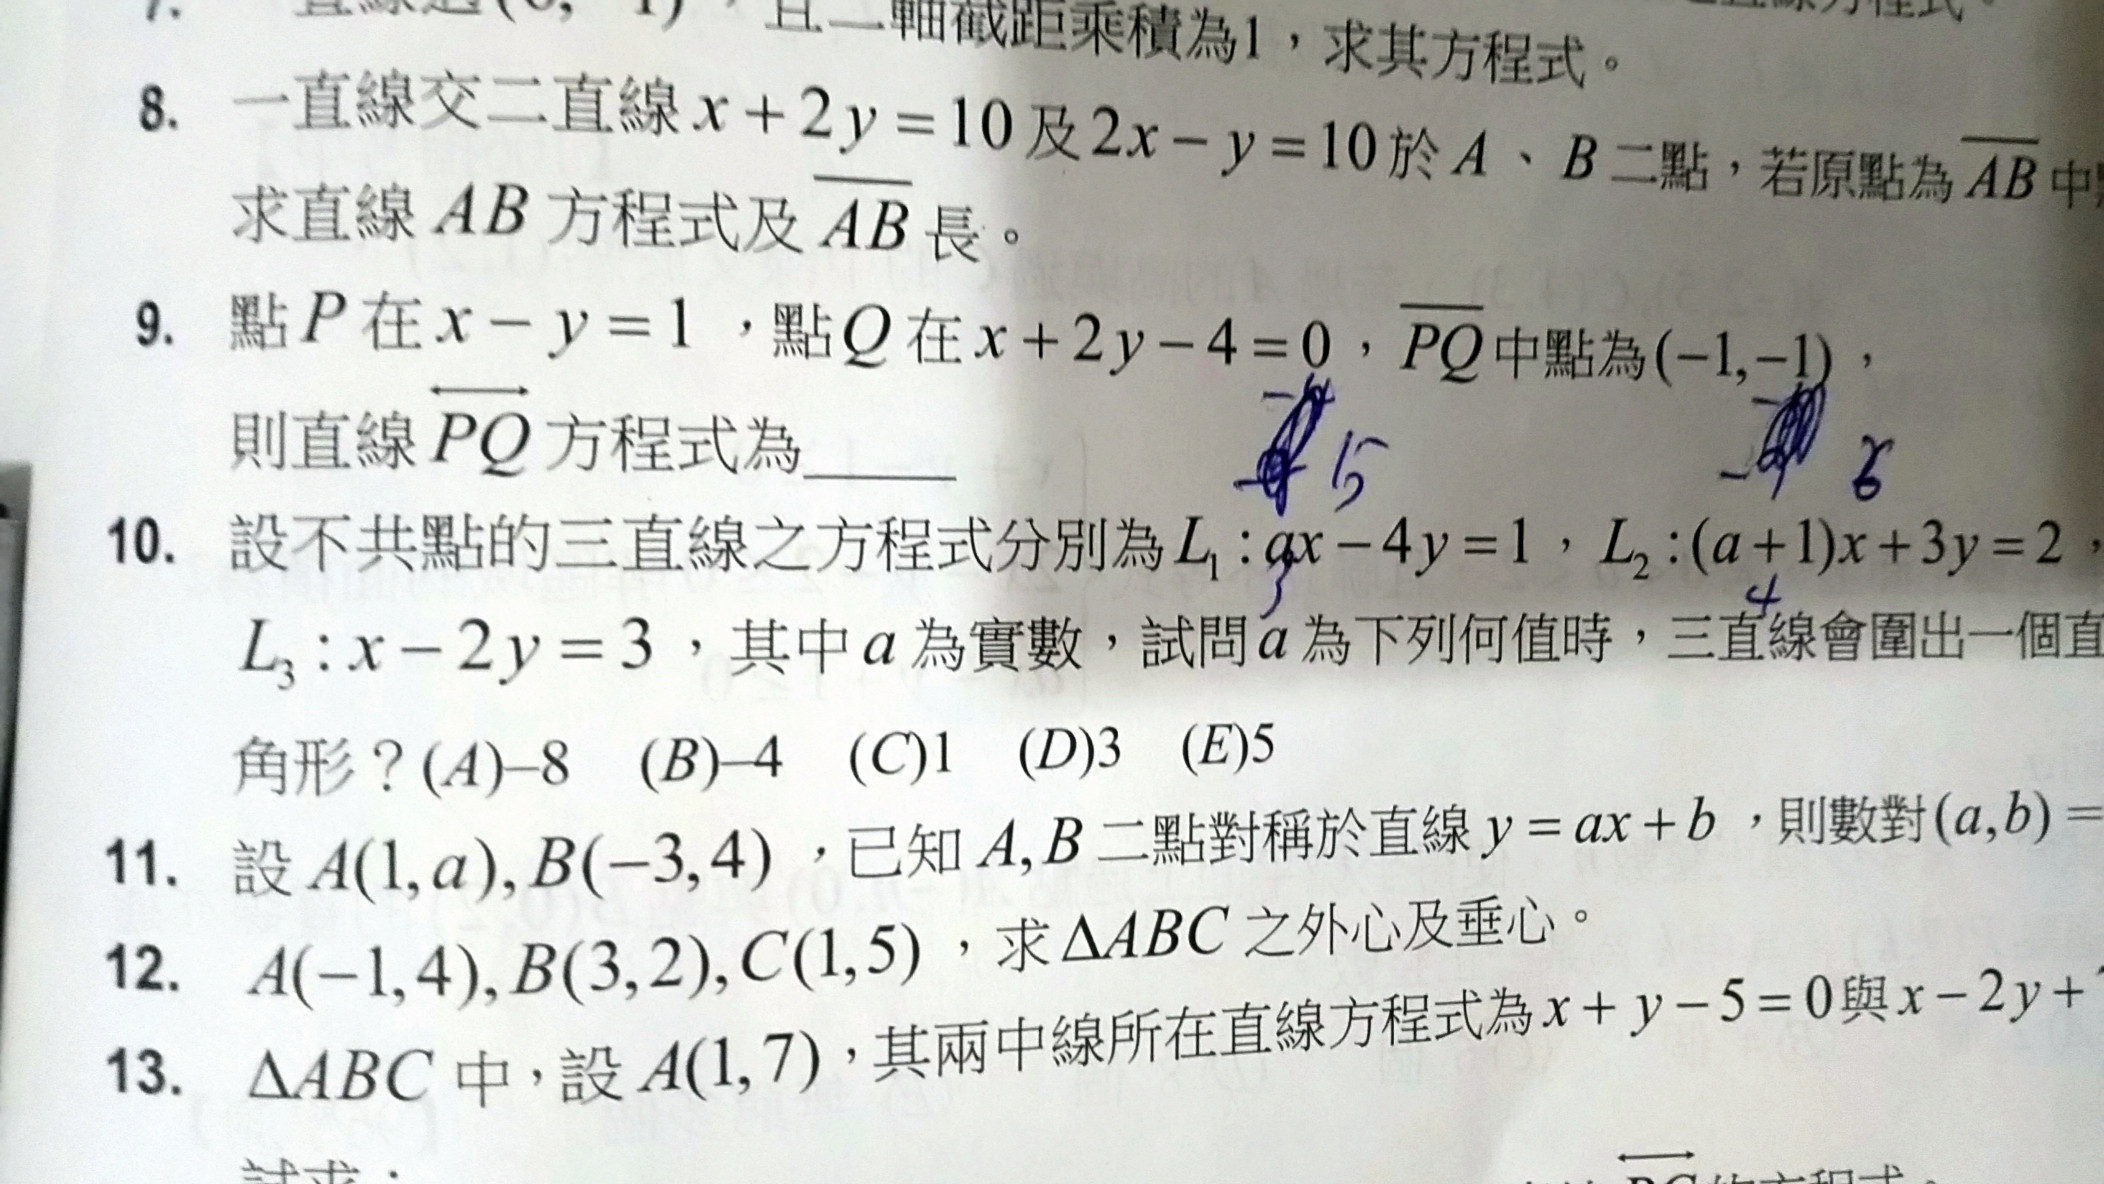 7. 一直線過(6, -1)，且二軸截距乘積為1，求其方程式。
8. 一直線交二直線 x + 2y = 10 及 2x − y = 10 於 A、B 二點，若原點為 AB 中
求直線 AB 方程式及 AB 長。
9. 點 P 在 x − y = 1，點 Q 在 x + 2y − 4 = 0，PQ 中點為 (−1,−1)，
則直線 PQ 方程式為____
15 6
10. 設不共點的三直線之方程式分別為 L₁ : ax − 4y = 1，L₂ : (a + 1)x + 3y = 2，
3 4
L₃ : x − 2y = 3，其中 a 為實數，試問 a 為下列何值時，三直線會圍出一個直
角形？(A)–8 (B)–4 (C)1 (D)3 (E)5
11. 設 A(1, a), B(−3, 4)，已知 A, B 二點對稱於直線 y = ax + b，則數對 (a,b) =
12. A(−1, 4), B(3, 2), C(1, 5)，求 ΔABC 之外心及垂心。
13. ΔABC 中，設 A(1, 7)，其兩中線所在直線方程式為 x + y − 5 = 0 與 x − 2y +
試求：